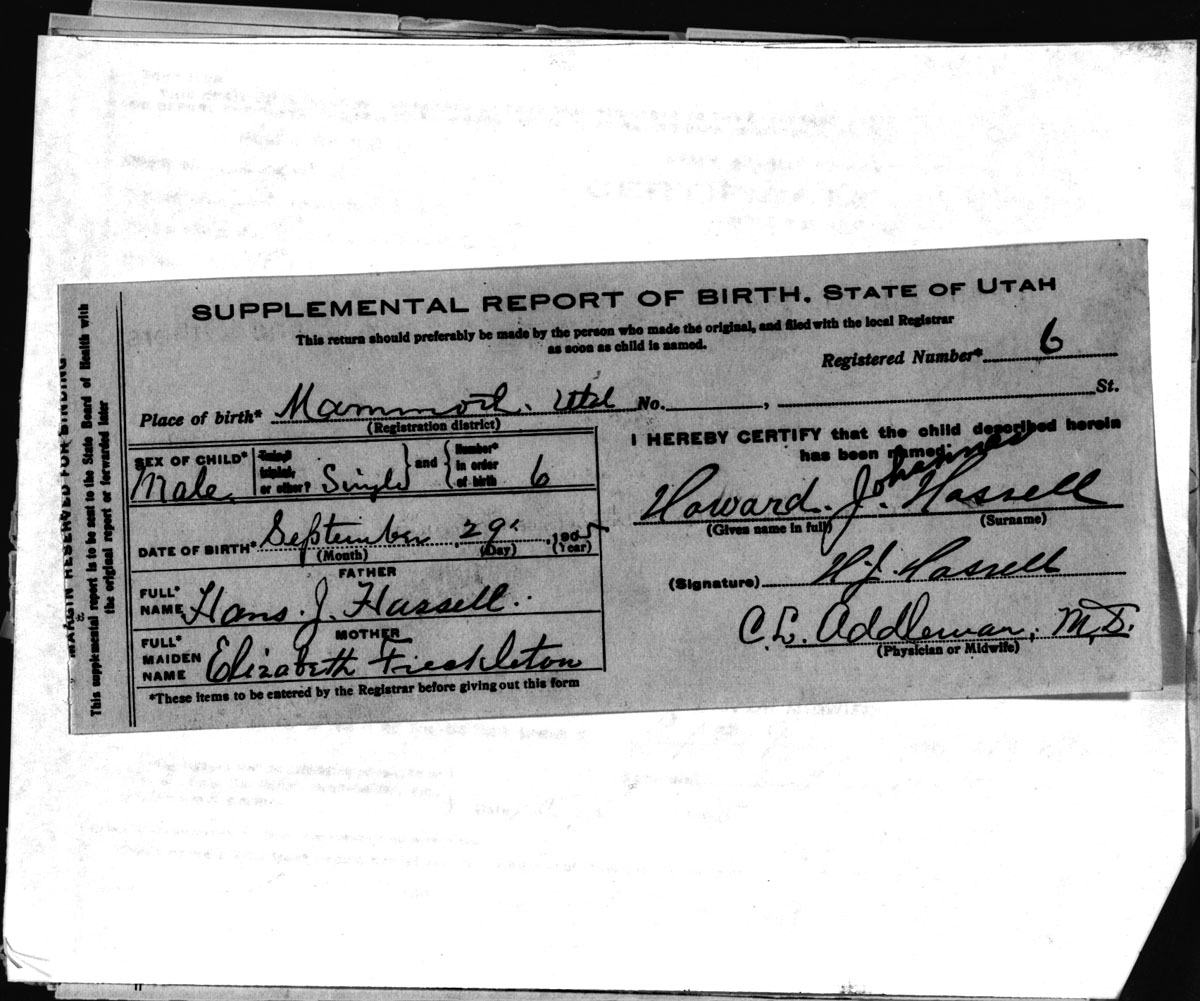 SUPPLEMENTAL REPORT OF BIRTH. STATE OF UTAH
This return should preferably be made by the person who made the original, and filed with the local Registrar
as soon as child is named.
Registered Number* 6
Place of birth* Mammoth. Utah No. , St.
(Registration district)
SEX OF CHILD* Male.
Twins
triplets
or other? Single
and
Number*
in order
of birth 6
DATE OF BIRTH* September 29. 1905
(Month) (Day) (Year)
FATHER
FULL*
NAME Hans. J. Hassell.
MOTHER
FULL*
MAIDEN
NAME Elizabeth Freckleton
*These items to be entered by the Registrar before giving out this form
I HEREBY CERTIFY that the child described herein
has been named:
Johannes
Howard. J. Hassell
(Given name in full) (Surname)
(Signature) H. J. Hassell
C. L. Addleman, M.D.
(Physician or Midwife)
MARGIN RESERVED FOR BINDING
This supplemental report is to be sent to the State Board of Health with
the original report or forwarded later